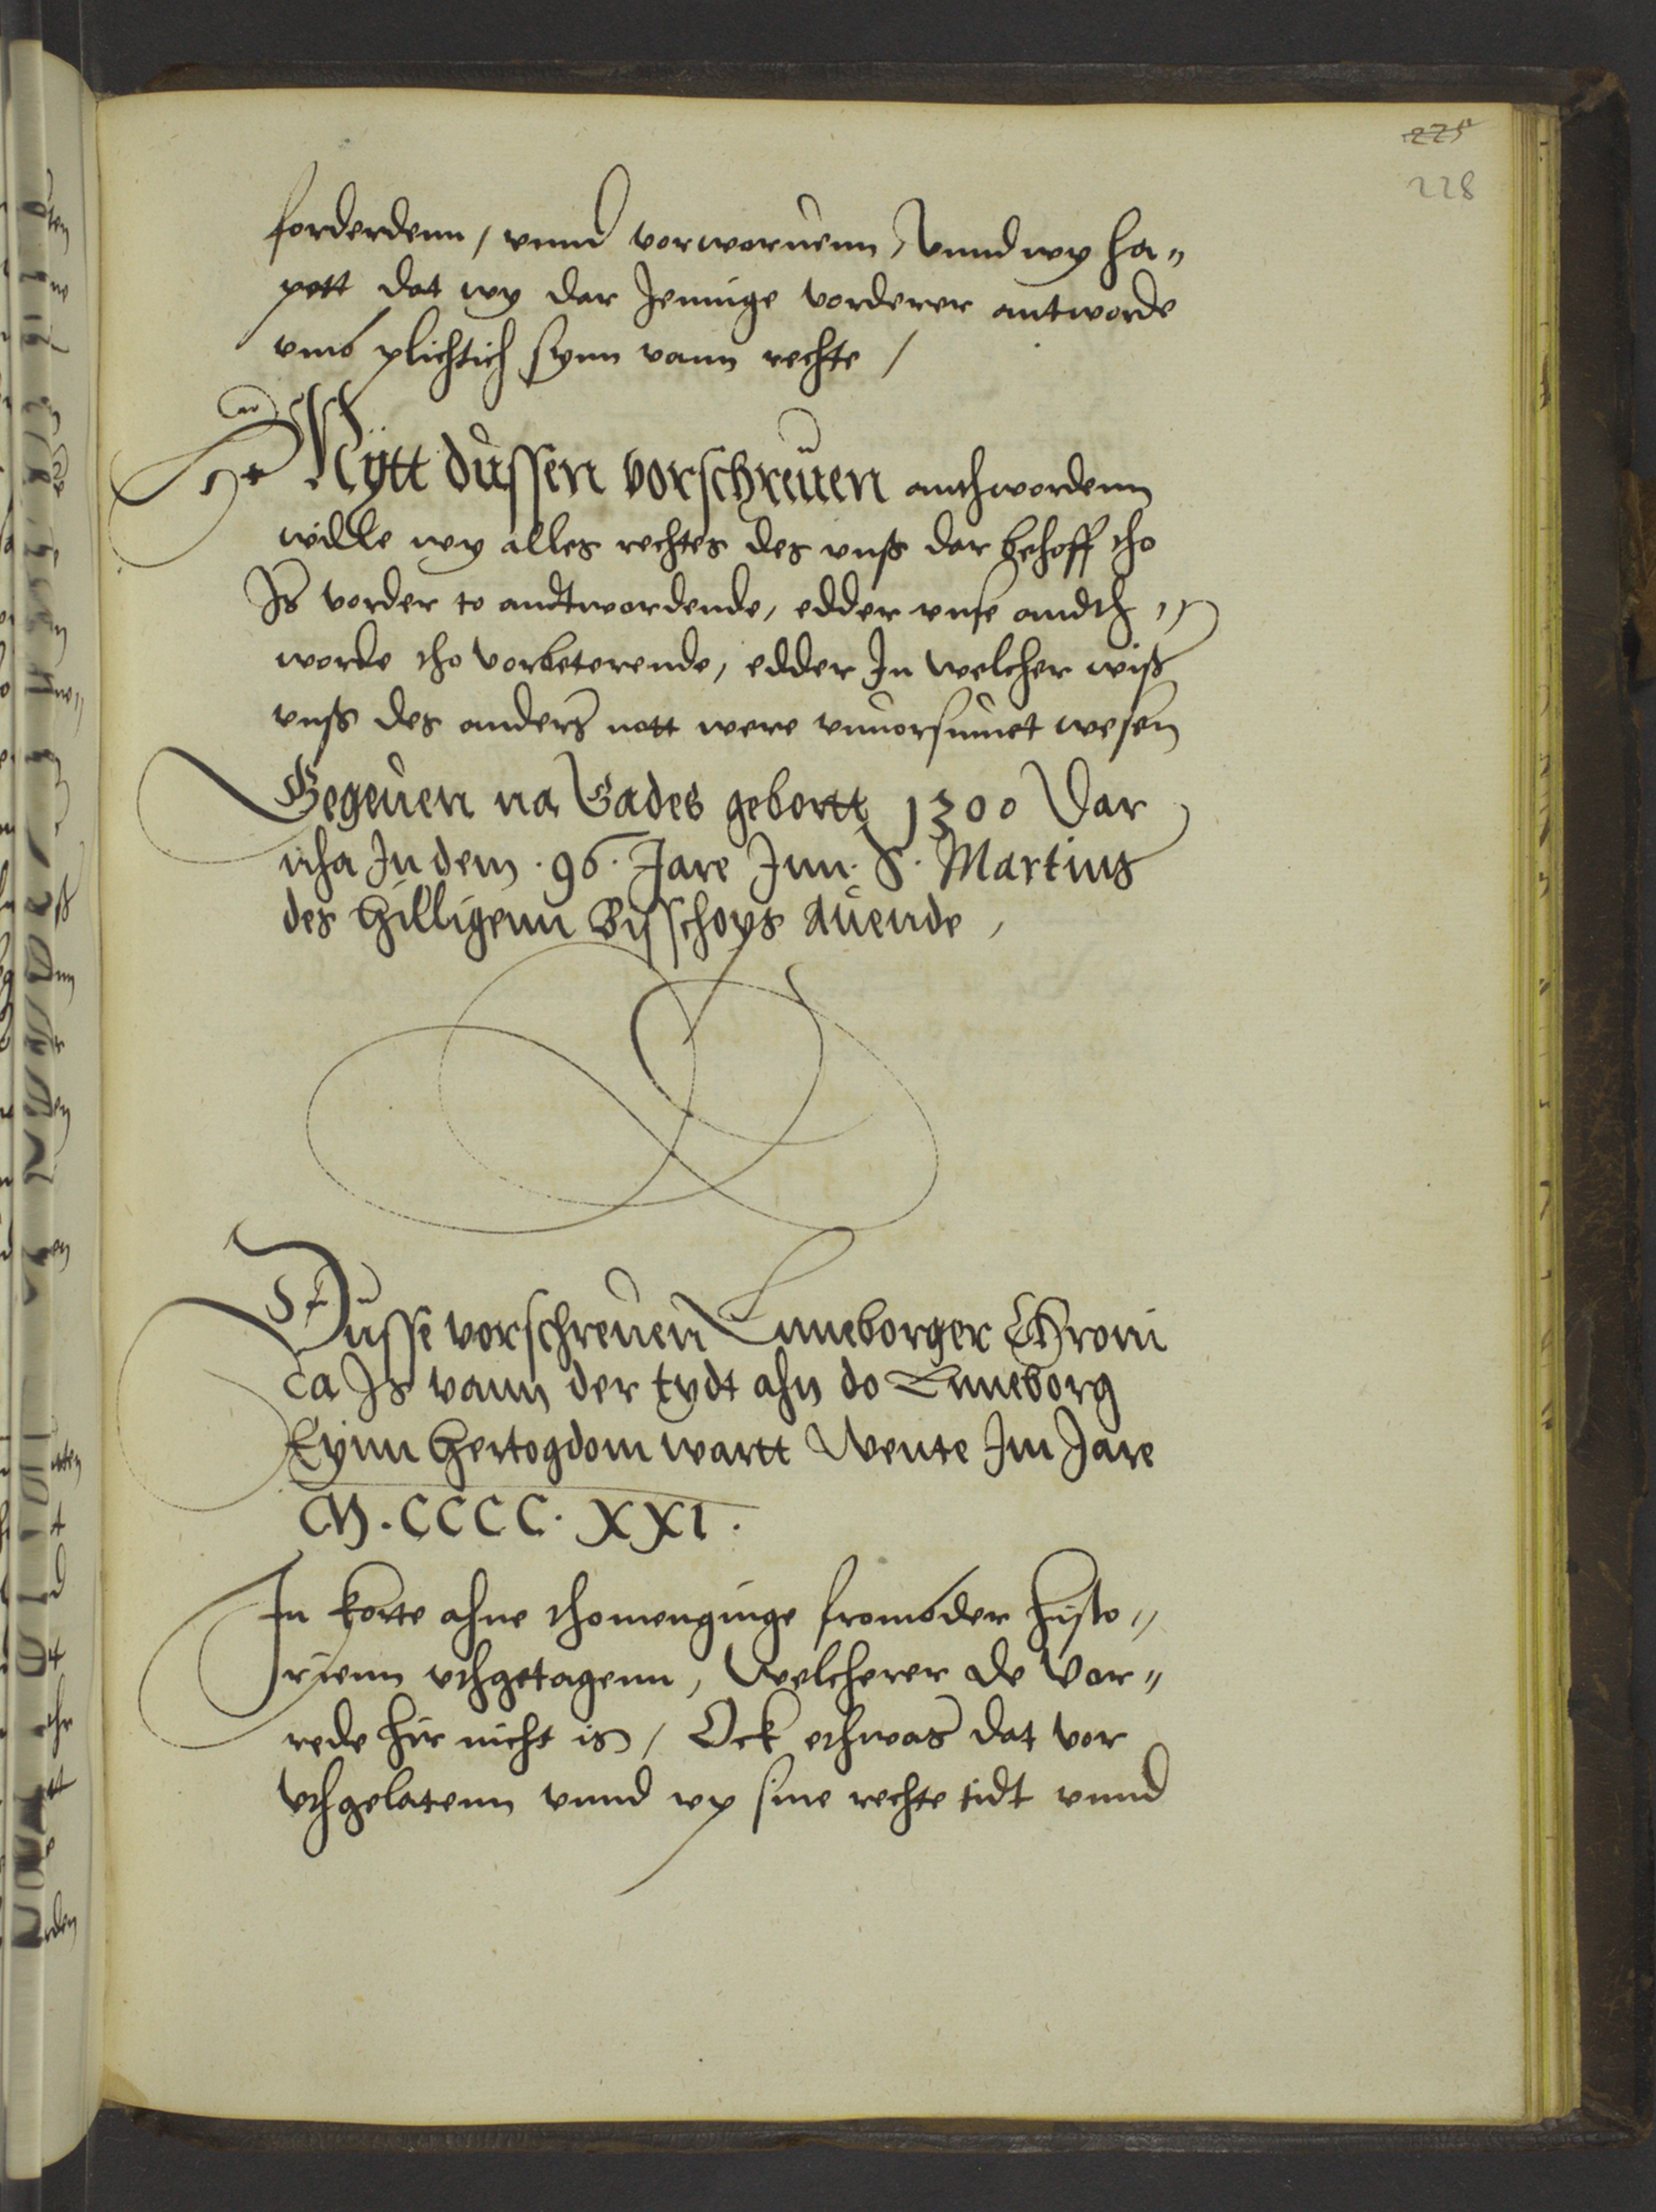 225
228
forderdenn / vnnd vorworuenn / Vnnd wy ha„
pett dat wy dar Jennige vorderer antworde
vmb plichtich synn vann rechte /
Mytt dussen vorschreuen anthwordenn
wille wy alles rechtes des vnß dar behoff tho
Is vorder to andtwordende, edder vnse andth„
worde tho vorbeterende, edder In welcher wiß
vnß des anders nott were vnuorsumet wesen
Gegeuen na Gades gebortt 1300 Dar
nha In dem . 96 . Jare Inn . S . Martins
des Hilligenn Bysschops Auende ,
Dusse vorschreuen Luneborger Chroni
ca Is vann der tydt ahn do Luneborg
Eynn Hertogdom wartt Wente Im Jare
M . CCCC . XXI .
In korte ahne thomenginge frombder histo„
rienn vthgetagenn, Welcherer de Vor„
rede hir nicht is / Ock ethwas dat vor
vthgelatenn vnnd vp sine rechte tidt vnnd